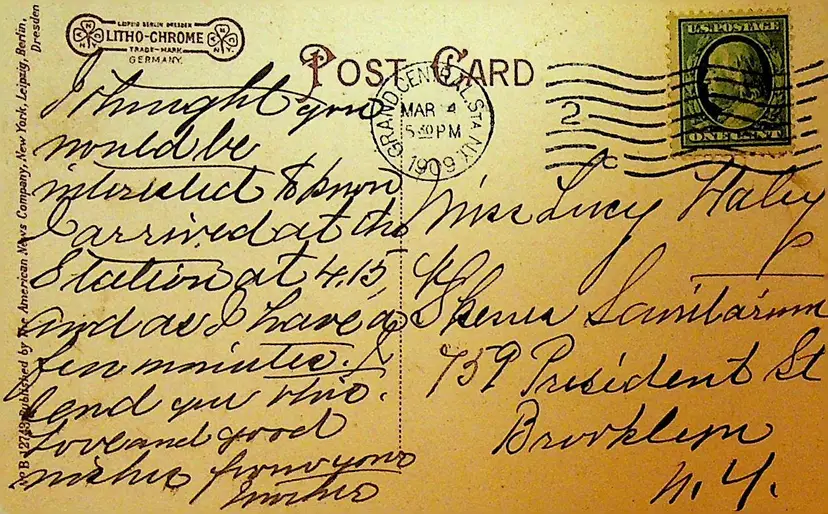 LEIPZIG BERLIN DRESDEN
LITHO-CHROME
TRADE-MARK
GERMANY.
POST CARD
GRAND CENTRAL STA. N.Y.
MAR 4
5 30 PM
1909
2
U.S. POSTAGE
ONE CENT
I thought you
would be
interested to know
I arrived at the
Station at 4.15
and as I have a
few minutes. I
send you this.
Love and good
wishes from your
Mother
Miss Lucy Haley
Sanitarium
759 President St
Brooklyn
N.Y.
No B 12743 Published by The American News Company, New York, Leipzig, Berlin,
Dresden